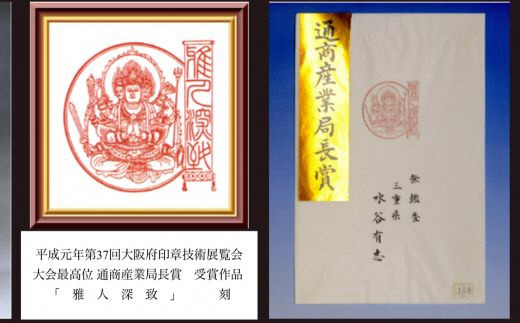 雅人深致
平成元年第37回大阪府印章技術展覧会
大会最高位 通商産業局長賞　受賞作品
「　雅　人　深　致　」　　　刻
通商産業局長賞
無鑑査
三重県
水谷有志